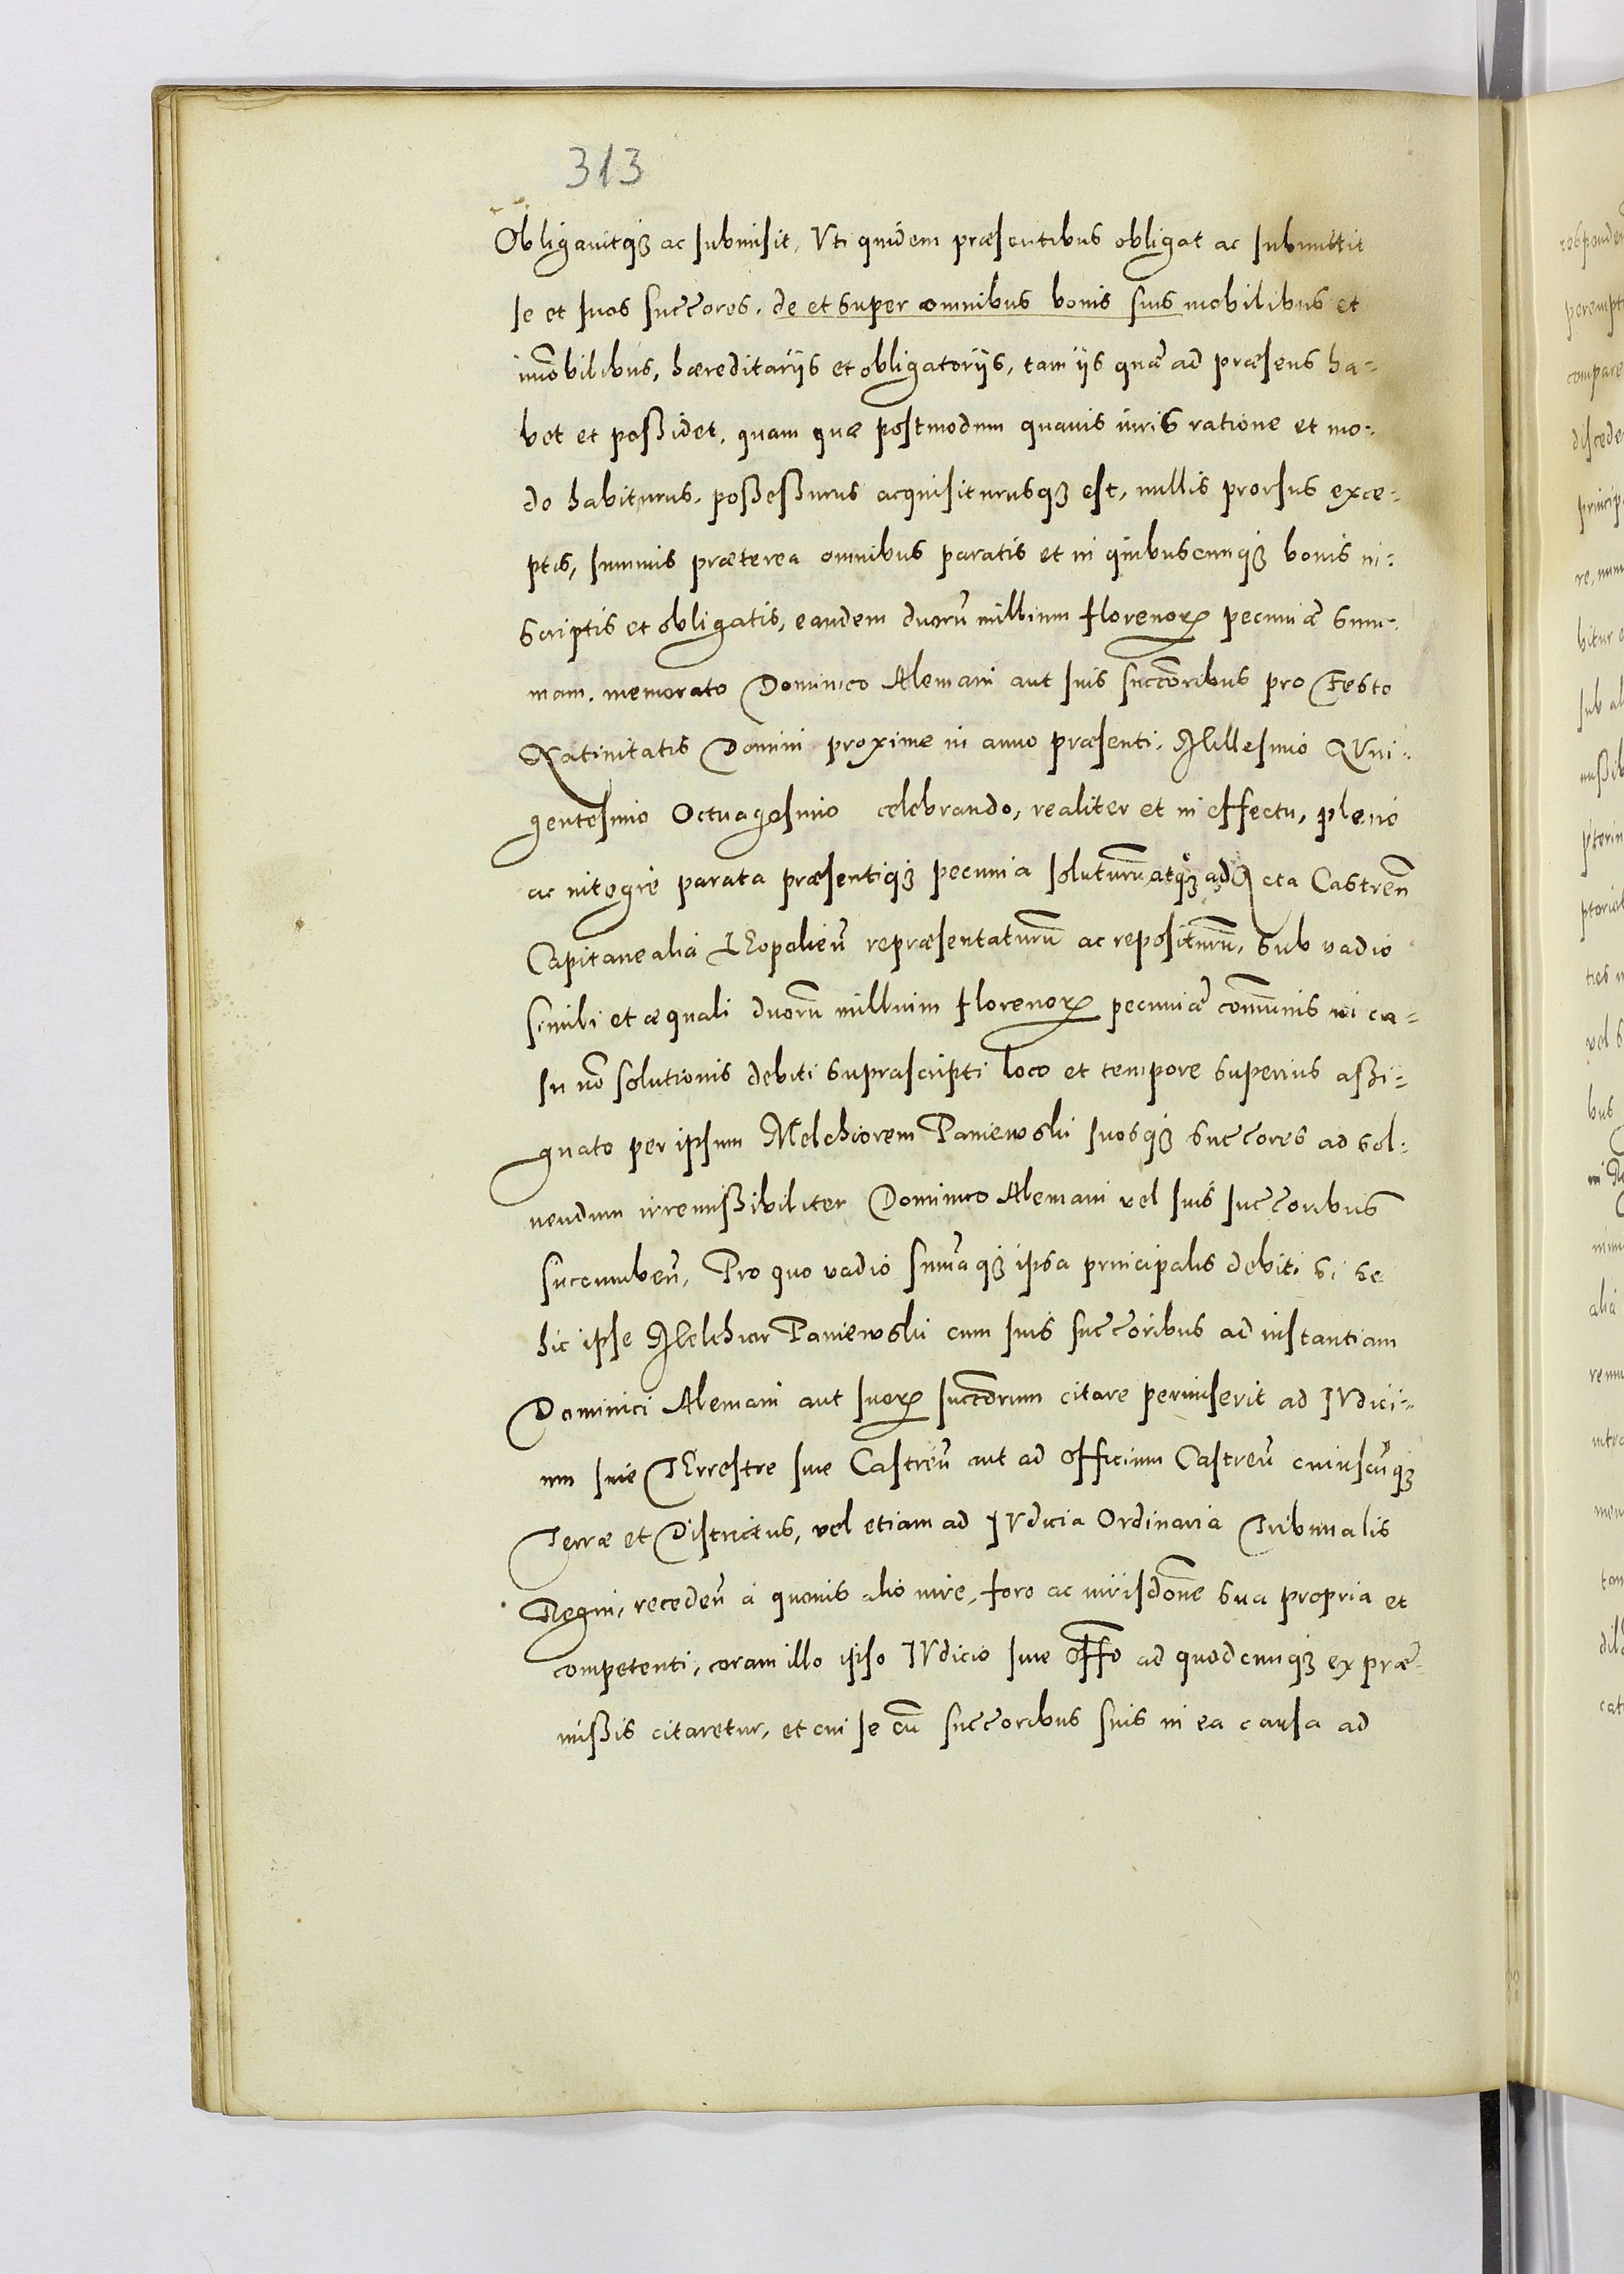 313
Obligauitq₃ ac submisit, Vti quidem præsentibus obligat ac submittit
se et suos succores, de et super omnibus bonis suis mobilibus et
im̃obilibus, hæreditarijs et obligatorijs, tam ijs quæ ad præsens ha-
bet et poßidet, quam quæ postmodum quauis iuris ratione et mo-
do habiturus, poßeßurus acquisiturusq₃ est, nullis prorsus exce-
ptis, summis præterea omnibus paratis et in quibuscunq₃ bonis in-
scriptis et obligatis, eandem duorũ millium florenoꝝ pecuniæ sum-
mam, memorato Dominico Alemani aut suis succoribus pro Festo
Natiuitatis Domini proxime in anno præsenti, Millesimo QVin-
gentesimo Octuagesimo celebrando, realiter et in effectu, plenè
ac integrè parata præsentiq₃ pecunia soluturum, atq₃ ad Acta Castren̄
Capitanealia LEopolien̄ repræsentaturum̄ ac repositurum̄, sub vadio
simili et æquali duorum̄ millium florenoꝝ pecuniæ com̄unis in ca-
su nõ solutionis debiti suprascripti loco et tempore superius aßi-
gnato per ipsum Melchiorem Paniewski suosq₃ succores ad sol-
uendum irremißibiliter Dominico Alemani vel suis succoribus
succumben̄, Pro quo vadio sum̄aq₃ ipsa principalis debiti si se
hic ipse Melchior Paniewski cum suis succoribus ad instantiam
Dominici Alemani aut suoꝝ succorum citare permiserit ad IVdici-
um siue TErrestre siue Castren̄ aut ad officium Castren̄ cuiuscũq₃
Terræ et Districtus, vel etiam ad IVdicia Ordinaria Tribunalis
Regni, receden̄ à quouis alio iure, foro ac iurisdõne sua propria et
competenti, coram illo ipso IVdicio siue offõ ad quodcunq₃ ex præ-
mißis citaretur, et cui se cũ succoribus suis in ea causa ad